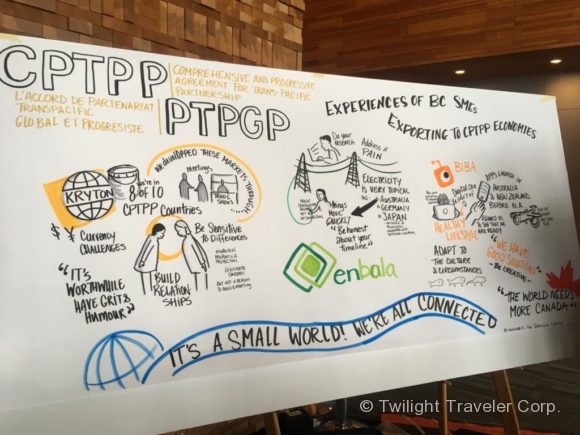 CPTPP
COMPREHENSIVE AND PROGRESSIVE
AGREEMENT FOR TRANS-PACIFIC
PARTNERSHIP
L'ACCORD DE PARTENARIAT
TRANSPACIFIC
GLOBAL ET PROGRESISTE
PTPGP
EXPERIENCES OF BC SMEs
EXPORTING TO CPTPP ECONOMIES
KRYTON
we're in
8 of 10
CPTPP Countries
WE DEVELOPED THESE MARKETS THROUGH...
meetings
TRADE
SHOWS
$ ¥ Currency
CHALLENGES
"IT'S
WORTHWHILE
HAVE GRIT &
HUMOUR"
Be Sensitive
to Differences
BUILD
RELATION
SHIPS
Do your
research
Address a
PAIN
ELECTRICITY
IS VERY TOPICAL
in
AUSTRALIA
GERMANY
JAPAN
things
move
quickly!
"Be honest
about your
timeline"
enbala
BIBA
Digital Care
as part of
HEALTHY
LIFESTYLE
APPS LAUNCH IN
AUSTRALIA
& NEW ZEALAND
BEFORE N.A.
ALLOWED US
TO SEE THAT WE
WERE READY
ADAPT TO
THE CULTURE
& CIRCUMSTANCES
"WE HAVE
GOOD SOLUTIONS"
BE CREATIVE
"THE WORLD NEEDS
MORE CANADA"
IT'S A SMALL WORLD! WE'RE ALL CONNECTED
© Twilight Traveler Corp.